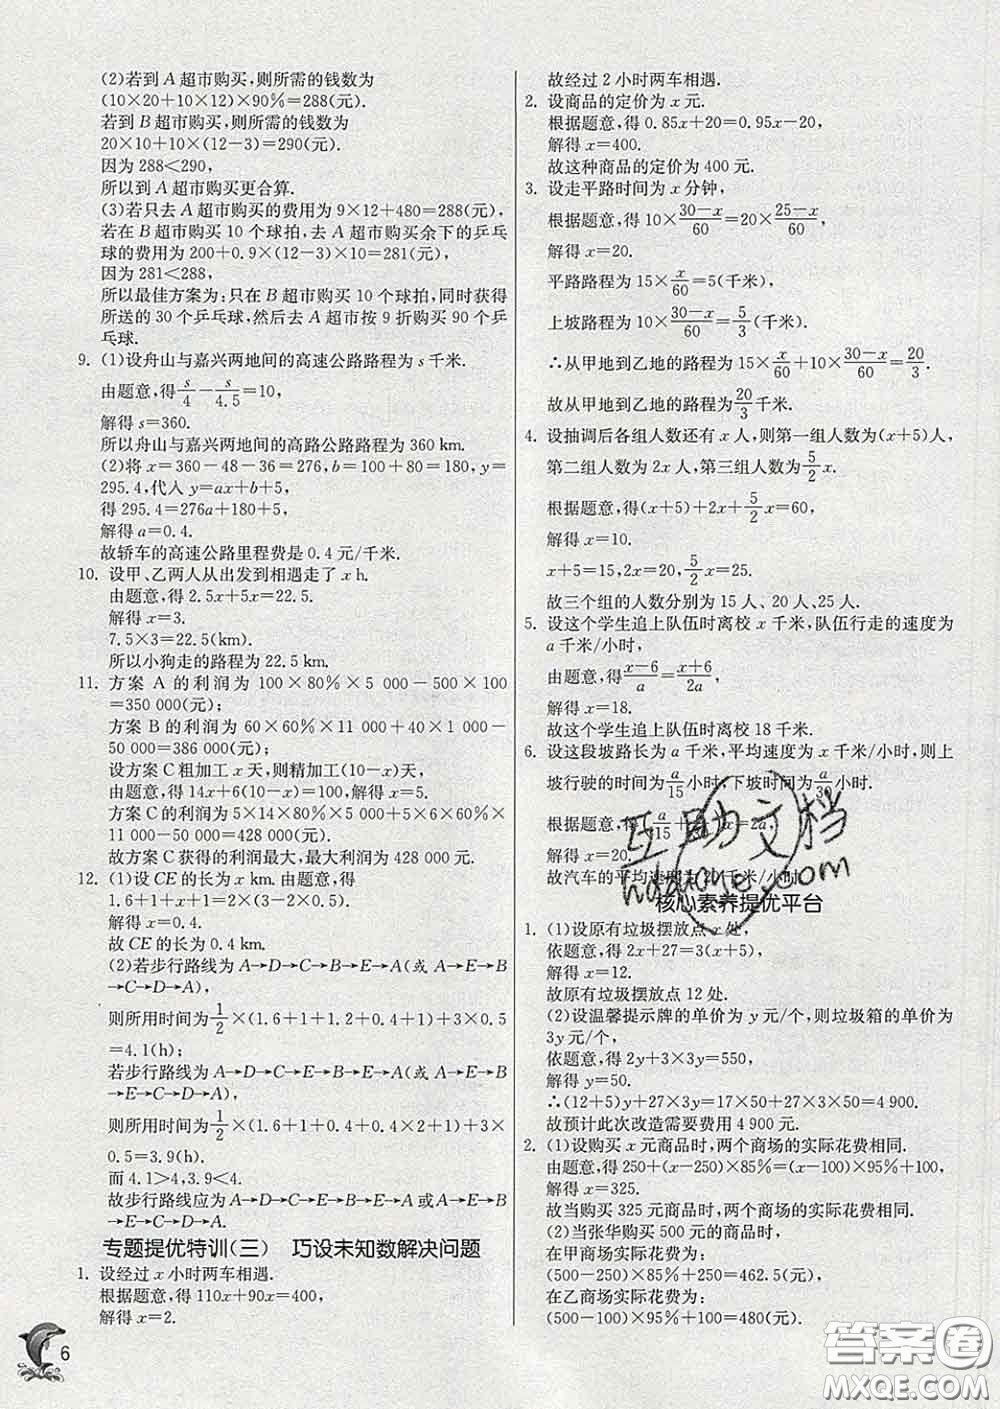 (2)若到 A 超市购买,则所需的钱数为
(10×20+10×12)×90%=288(元).
若到 B 超市购买,则所需的钱数为
20×10+10×(12-3)=290(元).
因为 288<290,
所以到 A 超市购买更合算.
(3)若只去 A 超市购买的费用为 9×12+480=288(元),
若在 B 超市购买 10 个球拍,去 A 超市购买余下的乒乓
球的费用为 200+0.9×(12-3)×10=281(元),
因为 281<288,
所以最佳方案为:只在 B 超市购买 10 个球拍,同时获得
所送的 30 个乒乓球,然后去 A 超市按 9 折购买 90 个乒
乓球.
9. (1)设舟山与嘉兴两地间的高速公路路程为 s 千米.
由题意,得 s/4 - s/4.5 =10,
解得 s=360.
所以舟山与嘉兴两地间的高路公路路程为 360 km.
(2)将 x=360-48-36=276,b=100+80=180,y=
295.4,代入 y=ax+b+5,
得 295.4=276a+180+5,
解得 a=0.4.
故轿车的高速公路里程费是 0.4 元/千米.
10. 设甲、乙两人从出发到相遇走了 x h.
由题意,得 2.5x+5x=22.5.
解得 x=3.
7.5×3=22.5(km).
所以小狗走的路程为 22.5 km.
11. 方案 A 的利润为 100×80%×5 000-500×100
=350 000(元);
方案 B 的利润为 60×60%×11 000+40×1 000-
50 000=386 000(元);
设方案 C 粗加工 x 天,则精加工(10-x)天,
由题意,得 14x+6(10-x)=100,解得 x=5.
方案 C 的利润为 5×14×80%×5 000+5×6×60%
×11 000-50 000=428 000(元).
故方案 C 获得的利润最大,最大利润为 428 000 元.
12. (1)设 CE 的长为 x km.由题意,得
1.6+1+x+1=2×(3-2×0.5),
解得 x=0.4.
故 CE 的长为 0.4 km.
(2)若步行路线为 A→D→C→B→E→A(或 A→E→B
→C→D→A),
则所用时间为 1/2 ×(1.6+1+1.2+0.4+1)+3×0.5
=4.1(h);
若步行路线为 A→D→C→E→B→E→A(或 A→E→B
→E→C→D→A),
则所用时间为 1/2 ×(1.6+1+0.4+0.4×2+1)+3×
0.5=3.9(h).
而 4.1>3.9,3.9<4.
故步行路线应为 A→D→C→E→B→E→A 或 A→E→
B→E→C→D→A.
专题提优特训(三) 巧设未知数解决问题
1. 设经过 x 小时两车相遇.
根据题意,得 110x+90x=400,
解得 x=2.
6
故经过 2 小时两车相遇.
2. 设商品的定价为 x 元.
根据题意,得 0.85x+20=0.95x-20,
解得 x=400.
故这种商品的定价为 400 元.
3. 设走平路时间为 x 分钟,
根据题意,得 10× (30-x)/60 =20× (25-x)/60,
解得 x=20.
平路路程为 15× x/60 =5(千米),
上坡路程为 10× (30-x)/60 = 5/3 (千米).
∴从甲地到乙地的路程为 15× x/60 +10× (30-x)/60 = 20/3.
故从甲地到乙地的路程为 20/3 千米.
4. 设抽调后各组人数还有 x 人,则第一组人数为(x+5)人,
第二组人数为 2x 人,第三组人数为 5/2 x.
根据题意,得(x+5)+2x+ 5/2 x=60,
解得 x=10.
x+5=15,2x=20, 5/2 x=25.
故三个组的人数分别为 15 人、20 人、25 人.
5. 设这个学生追上队伍时离校 x 千米,队伍行走的速度为
a 千米/小时,
由题意,得 (x-6)/a = (x+6)/2a,
解得 x=18.
故这个学生追上队伍时离校 18 千米.
6. 设这段坡路长为 a 千米,平均速度为 x 千米/小时,则上
坡行驶的时间为 a/15 小时,下坡时间为 a/30 小时.
根据题意,得 a/15 + x=2a,
解得 x=20.
故汽车的平均速度为 20 千米/小时.
核心素养提优平台
1. (1)设原有垃圾摆放点 x 处,
依题意,得 2x+27=3(x+5),
解得 x=12.
故原有垃圾摆放点 12 处.
(2)设温馨提示牌的单价为 y 元/个,则垃圾箱的单价为
3y 元/个,
依题意,得 2y+3×3y=550,
解得 y=50.
∴(12+5)y+27×3y=17×50+27×3×50=4 900.
故预计此次改造需要费用 4 900 元.
2. (1)设购买 x 元商品时,两个商场的实际花费相同.
由题意,得 250+(x-250)×85%=(x-100)×95%+100,
解得 x=325.
故当购买 325 元商品时,两个商场的实际花费相同.
(2)当张华购买 500 元的商品时,
在甲商场实际花费为:
(500-250)×85%+250=462.5(元),
在乙商场实际花费为:
(500-100)×95%+100=480(元).
互助文档
hdzione.com
答案圈
MXQE.COM